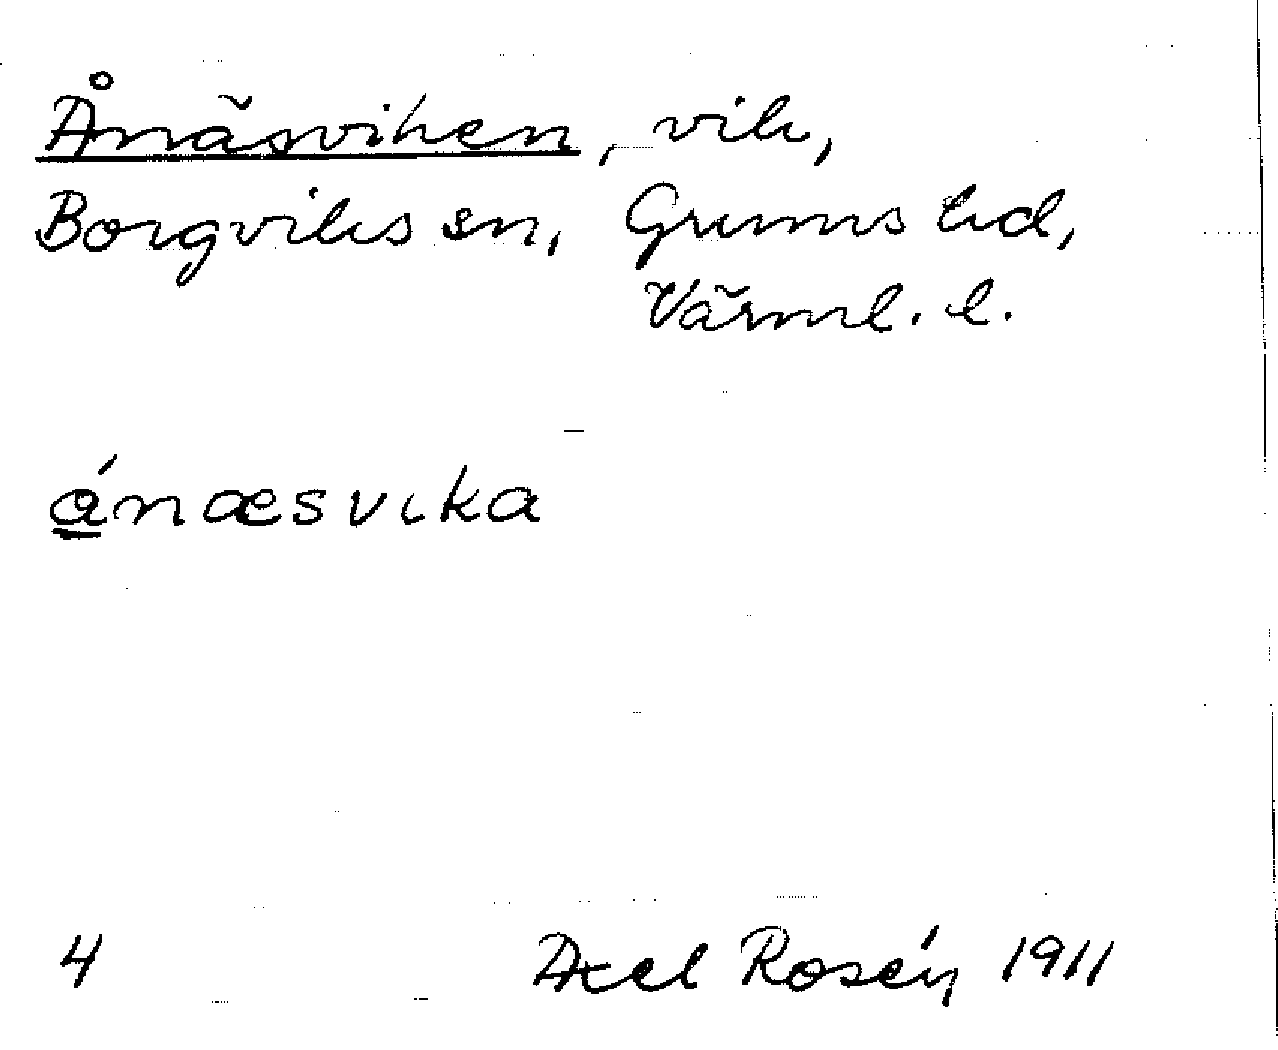 Ånäsviken, vik,
Borgviks sn, Grums hd,
Värml. l.
á̲næsvika
4 Axel Rosén 1911